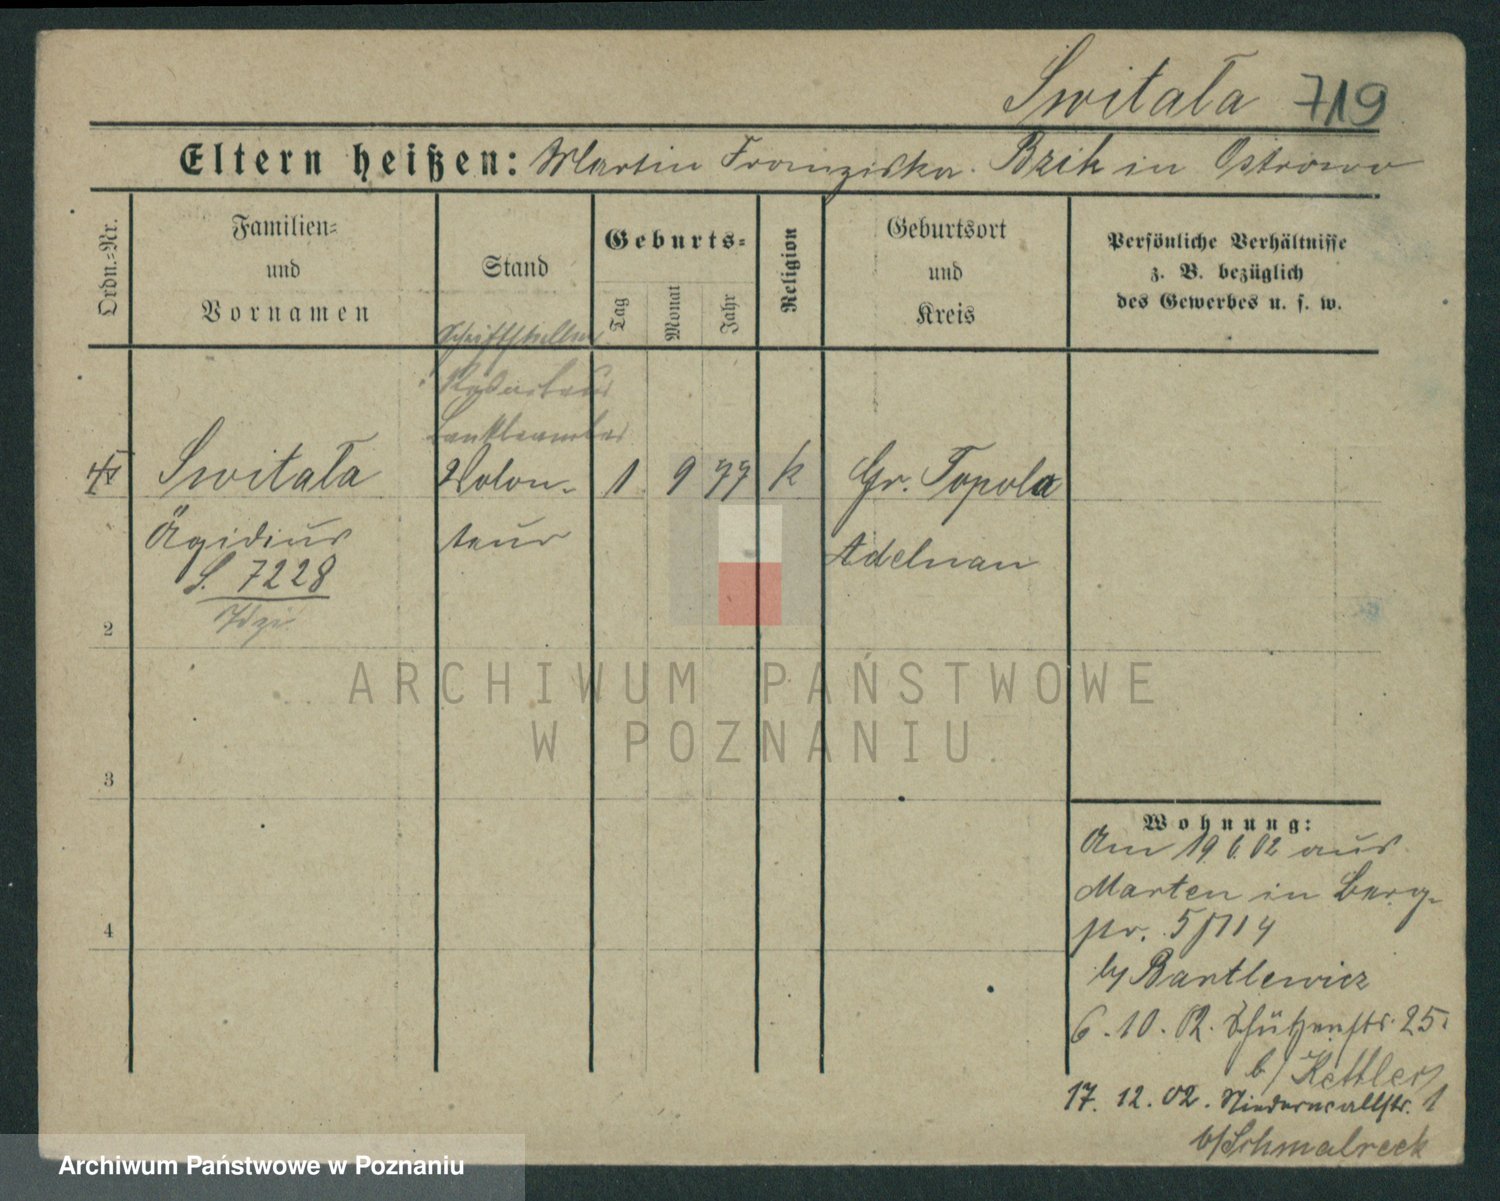 Switała 719
Eltern heißen: Martin Franziska. Bzik in Ostrowo
Ordn.=Nr.
Familien=
und
Vornamen
Stand
Geburts=
Tag
Monat
Jahr
Religion
Geburtsort
und
Kreis
Persönliche Verhältnisse
z. B. bezüglich
des Gewerbes u. s. w.
Schriftsteller
Redakteur
Bankbeamter
Switała Volon- 1 9 77 k Gr. Topola
Ägidius teur Adelnau
S. 7228
Idzi
2
3
4
Wohnung:
Am 19 6. 02 aus
Marten in Berg-
str. 5
by Bartlewicz
6. 10. 02. Schützenstr. 25.
b/ Kettler
17. 12. 02. Niederwallstr. 1
b/ Schmalreck
ARCHIWUM PAŃSTWOWE
W POZNANIU.
Archiwum Państwowe w Poznaniu